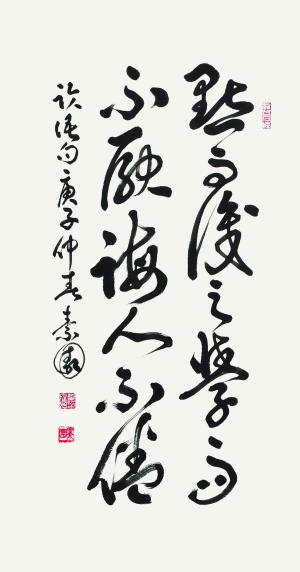 默而識之學而
不厭誨人不倦
論語句庚子仲春素園